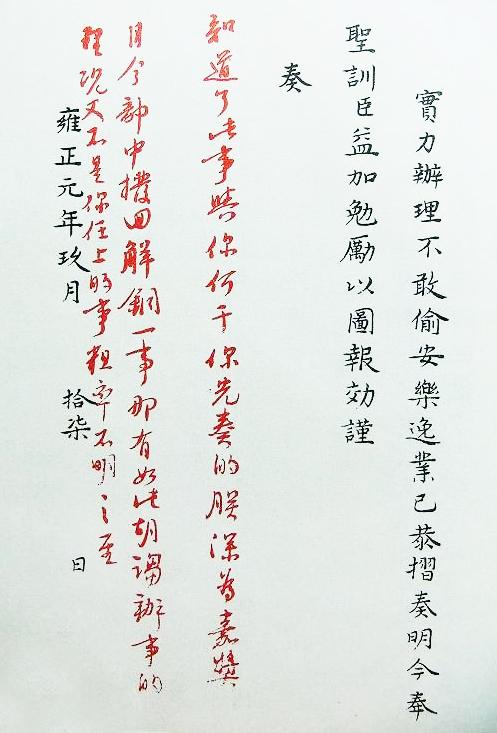 實力辦理不敢偷安樂逸業已恭摺奏明今奉
聖訓臣益加勉勵以圖報効謹
奏
知道了此事與你何干你先奏的朕深為嘉獎
目今部中撥回解銅一事那有如此胡謅辦事的
理况又不是你任上的事粗率不明之至
雍正元年玖月 拾柒 日